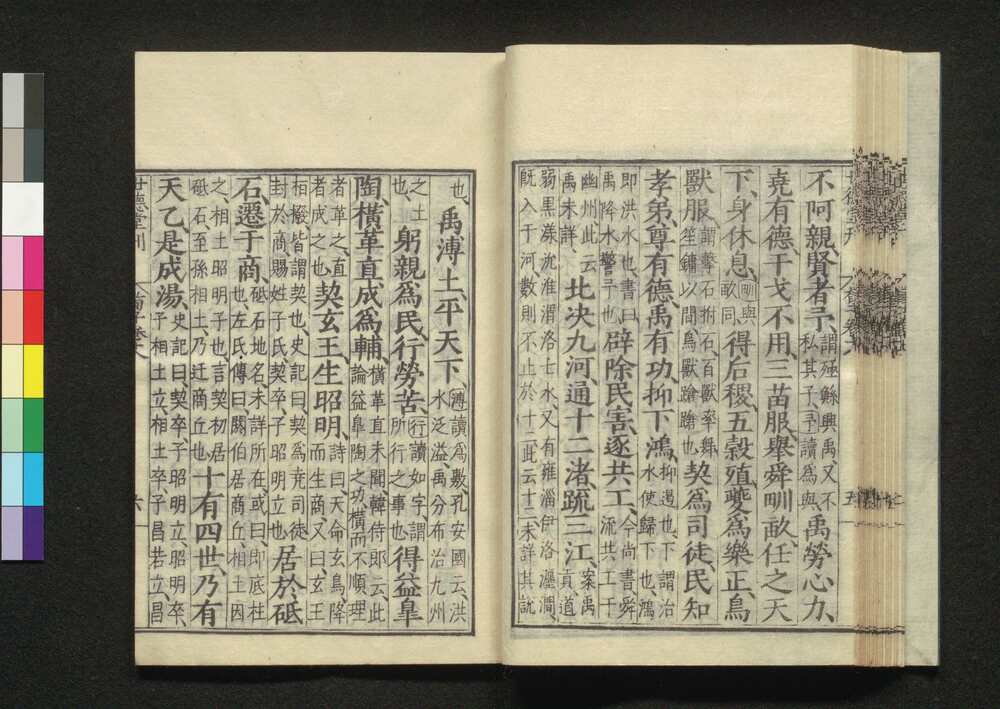 不阿親、賢者予、謂殛鯀興禹又不私其子、予讀為與、禹勞心力、
堯有德干戈不用、三苗服舉舜甽畝任之天
下、身休息、甽與畝同、得后稷五穀殖、夔為樂正、鳥
獸服、謂擊石拊石、百獸率舞、笙鏞以間、鳥獸蹌蹌也、契為司徒、民知
孝弟、尊有德、禹有功、抑下鴻、抑遏也、下謂治水使歸下也、鴻
即洪水也、書曰禹降水警予也、辟除民害、逐共工、今尚書舜流共工于
幽州此云禹未詳、北决九河、通十二渚、疏三江、案禹貢道
弱黑漾沇淮渭洛七水又有雍淄伊洛瀍澗既入于河、數則不止於十二此云十二未詳其說
也、禹溥土、平天下、溥讀為敷、孔安國云、洪水泛溢、禹分布治九州
之土也、躬親為民、行勞苦、行讀如字、謂所行之事也、得益皋
陶、橫革直成為輔、橫革直未聞、韓侍郎云、此論益皋陶之功、橫而不順理
者革之、直者成之也、契玄王、生昭明、詩曰、天命玄鳥、降而生商、又曰、玄王
桓撥、皆謂契也、史記曰、契為堯司徒、封於商、賜姓子氏、契卒、子昭明立也、居於砥
石、遷于商、砥石地名、未詳所在、或曰即底柱也、左氏傳曰、閼伯居商丘、相土因
之、相土昭明子也、言契初居砥石、至孫相土、乃迁商丘也、十有四世、乃有
天乙是成湯、史記曰、契卒、子昭明立、昭明卒、子相土立、相土卒、子昌若立、昌
世德堂刊
六